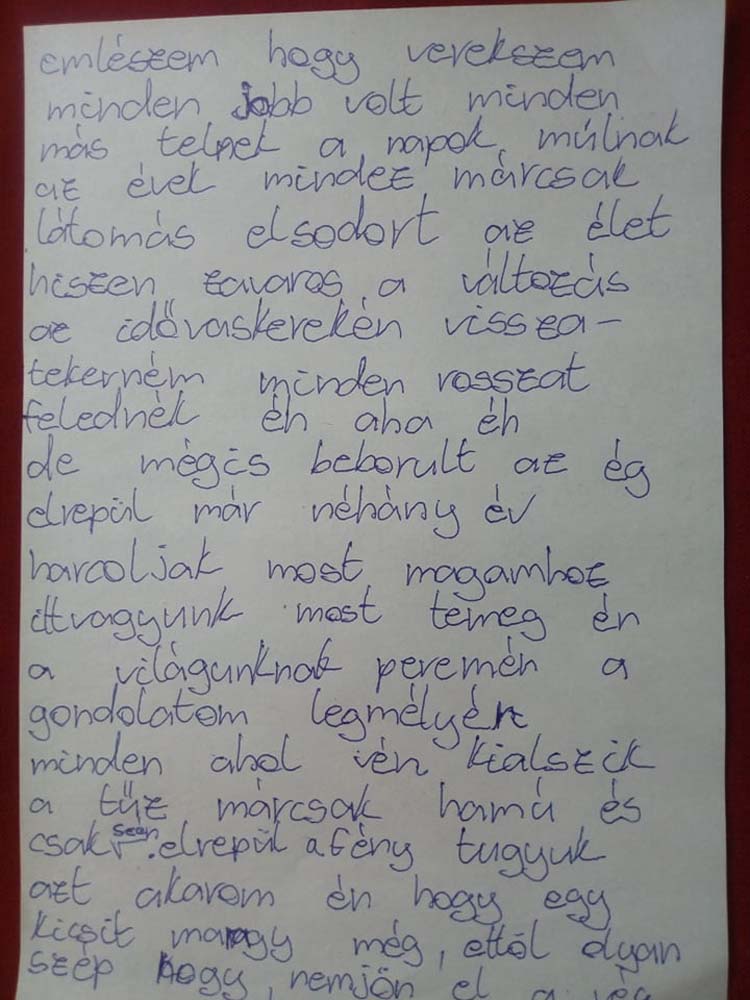 emlészem hogy verekszem
minden jobb volt minden
más telnek a napok, múlnak
az évek mindez márcsak
látomás elsodort az élet
hiszen zavaros a változás
az időváskerekén vissza-
tekerném minden rosszat
felednék éh aha éh
de mégis beborult az ég
elrepül már néhány év
harcoljak most magamhoz
ittvagyunk most temeg én
a világunknak peremén a
gondolatom legmélyén
minden ahol vén kialszik
a tűz márcsak hamú és
csak szén elrepül a fény tugyuk
azt akarom én hogy egy
kicsit maragy még, ettől olyan
szép hogy, nemjön el a vég